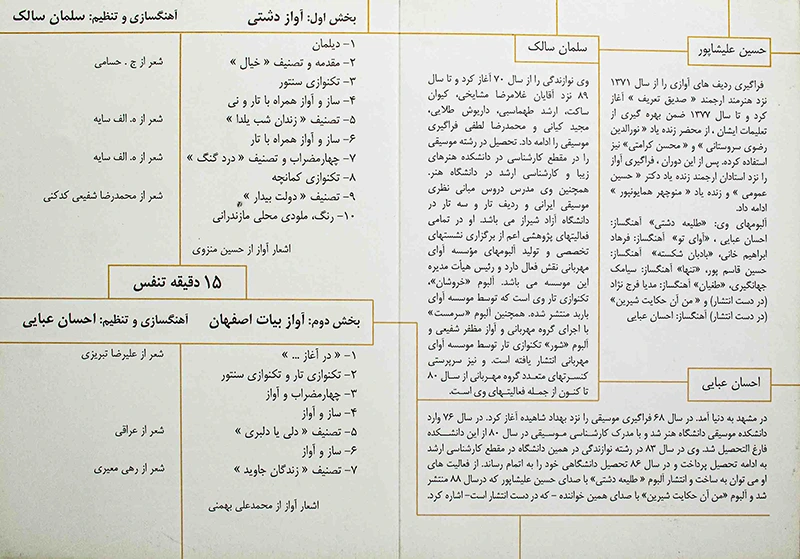 حسین علیشاپور
فراگیری ردیف های آوازی را از سال ۱۳۷۱
نزد هنرمند ارجمند « صدیق تعریف » آغاز
کرد و تا سال ۱۳۷۷ ضمن بهره گیری از
تعلیمات ایشان ، از محضر زنده یاد « نورالدین
رضوی سروستانی » و « محسن کرامتی» نیز
استفاده کرده. پس از این دوران ، فراگیری آواز
را نزد استادان ارجمند زنده یاد دکتر « حسین
عمومی » و زنده یاد « منوچهر همایونپور »
ادامه داد.
آلبومهای وی: «طلیعه دشتی» آهنگساز:
احسان عبایی ، «آوای تو» آهنگساز: فرهاد
ابراهیم خانی، «بادبان شکسته» آهنگساز:
حسین قاسم پور، «تنها» آهنگساز: سیامک
جهانگیری، «طغیان» آهنگساز: مدیا فرج نژاد
(در دست انتشار) و « من آن حکایت شیرین»
(در دست انتشار) آهنگساز: احسان عبایی
سلمان سالک
وی نوازندگی را از سال ۷۰ آغاز کرد و تا سال
۸۹ نزد آقایان غلامرضا مشایخی، کیوان
ساکت، ارشد طهماسبی، داریوش طلایی،
مجید کیانی و محمدرضا لطفی فراگیری
موسیقی را ادامه داد. تحصیل در رشته موسیقی
را در مقطع کارشناسی در دانشکده هنرهای
زیبا و کارشناسی ارشد در دانشگاه هنر.
همچنین وی مدرس دروس مبانی نظری
موسیقی ایرانی و ردیف تار و سه تار در
دانشگاه آزاد شیراز می باشد. او در تمامی
فعالیتهای پژوهشی اعم از برگزاری نشستهای
تخصصی و تولید آلبومهای مؤسسه آوای
مهربانی نقش فعال دارد و رئیس هیأت مدیره
این موسسه می باشد. آلبوم «خروشان»،
تکنوازی تار وی است که توسط موسسه آوای
باربد منتشر شده. همچنین آلبوم «سرمست»
با اجرای گروه مهربانی و آواز مظفر شفیعی و
آلبوم «شور» تکنوازی تار توسط موسسه آوای
مهربانی انتشار یافته است. و نیز سرپرستی
کنسرتهای متعدد گروه مهربانی از سال ۸۰
تا کنون از جمله فعالیتهای وی است.
احسان عبایی
در مشهد به دنیا آمد. در سال ۶۸ فراگیری موسیقی را نزد بهداد شاهیده آغاز کرد. در سال ۷۶ وارد
دانشکده موسیقی دانشگاه هنر شد و با مدرک کارشناسی موسیقی در سال ۸۰ از این دانشکده
فارغ التحصیل شد. وی در سال ۸۳ در رشته نوازندگی در همین دانشگاه در مقطع کارشناسی ارشد
به ادامه تحصیل پرداخت و در سال ۸۶ تحصیل دانشگاهی خود را به اتمام رساند. از فعالیت های
او می توان به ساخت و انتشار آلبوم « طلیعه دشتی» با صدای حسین علیشاپور که درسال ۸۸ منتشر
شد و آلبوم «من آن حکایت شیرین» با صدای همین خواننده – که در دست انتشار است– اشاره کرد.
بخش اول: آواز دشتی آهنگسازی و تنظیم: سلمان سالک
۱– دیلمان
۲– مقدمه و تصنیف « خیال » شعر از ج . حسامی
۳– تکنوازی سنتور
۴– ساز و آواز همراه با تار و نی
۵– تصنیف « زندان شب یلدا » شعر از ه. الف سایه
۶– ساز و آواز همراه با تار
۷– چهارمضراب و تصنیف « درد گنگ » شعر از ه. الف سایه
۸– تکنوازی کمانچه
۹– تصنیف « دولت بیدار » شعر از محمدرضا شفیعی کدکنی
۱۰– رنگ، ملودی محلی مازندرانی
اشعار آواز از حسین منزوی
۱۵ دقیقه تنفس
بخش دوم: آواز بیات اصفهان آهنگسازی و تنظیم: احسان عبایی
۱– « در آغاز ... » شعر از علیرضا تبریزی
۲– تکنوازی تار و تکنوازی سنتور
۳– چهارمضراب و آواز
۴– ساز و آواز
۵– تصنیف « دلی یا دلبری » شعر از عراقی
۶– ساز و آواز
۷– تصنیف « زندگان جاوید » شعر از رهی معیری
اشعار آواز از محمدعلی بهمنی